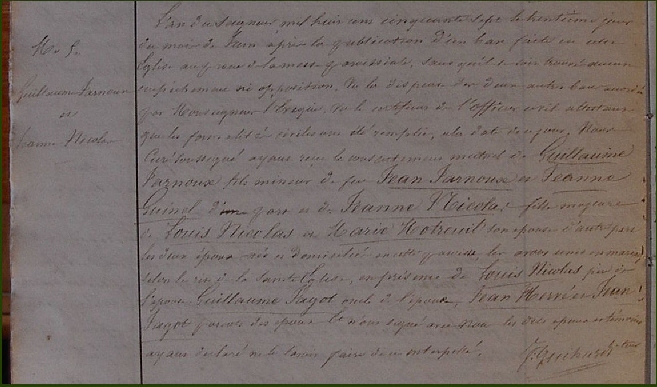 L'an du Seigneur mil huit cent cinquante sept le trentième jour
du mois de Juin après la publication d'un ban faite en cette
N. 5.
Église au prône de la messe paroissiale, sans qu'il se soit trouvé aucun
empêchement ni opposition, Vu la dispense des deux autres bans accordée
Guillaume Jarnoux
par Monseigneur l'Evêque, Vu le certificat de l'officier civil attestant
et
que les formalités civiles ont été remplies, à la date de ce jour, Nous
Jeanne Nicolas
soussigné ayant reçu le consentement mutuel de Guillaume
Jarnoux fils mineur de feu Jean Jarnoux et Jeanne
Guinel d'une part et de Jeanne Nicolas fille majeure
de Louis Nicolas et Marie Hotreuil son épouse d'autre part
les deux époux nés et domiciliés en cette paroisse les avons unis en mariage
selon le rit de la Sainte Église, en présence de Louis Nicolas père de
l'épouse Guillaume Pagot oncle de l'époux, Jean Hervé et Jean
Pagot parents des époux et n'ont signé avec Nous les dits époux et témoins
ayant déclaré ne le savoir faire de ce interpellés.